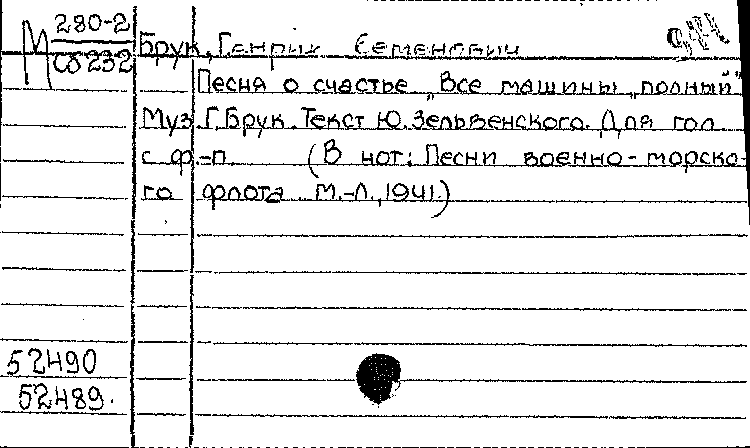 М 280-2
Сб 232
Брук, Генрих Семенович
Песня о счастье „Все машины „полный"
Муз Г. Брук. Текст Ю. Зельвенского. Для гол.
с ф.-п. (В нот: Песни военно-морско-
го флота М.-Л., 1941.)
52490
52489.